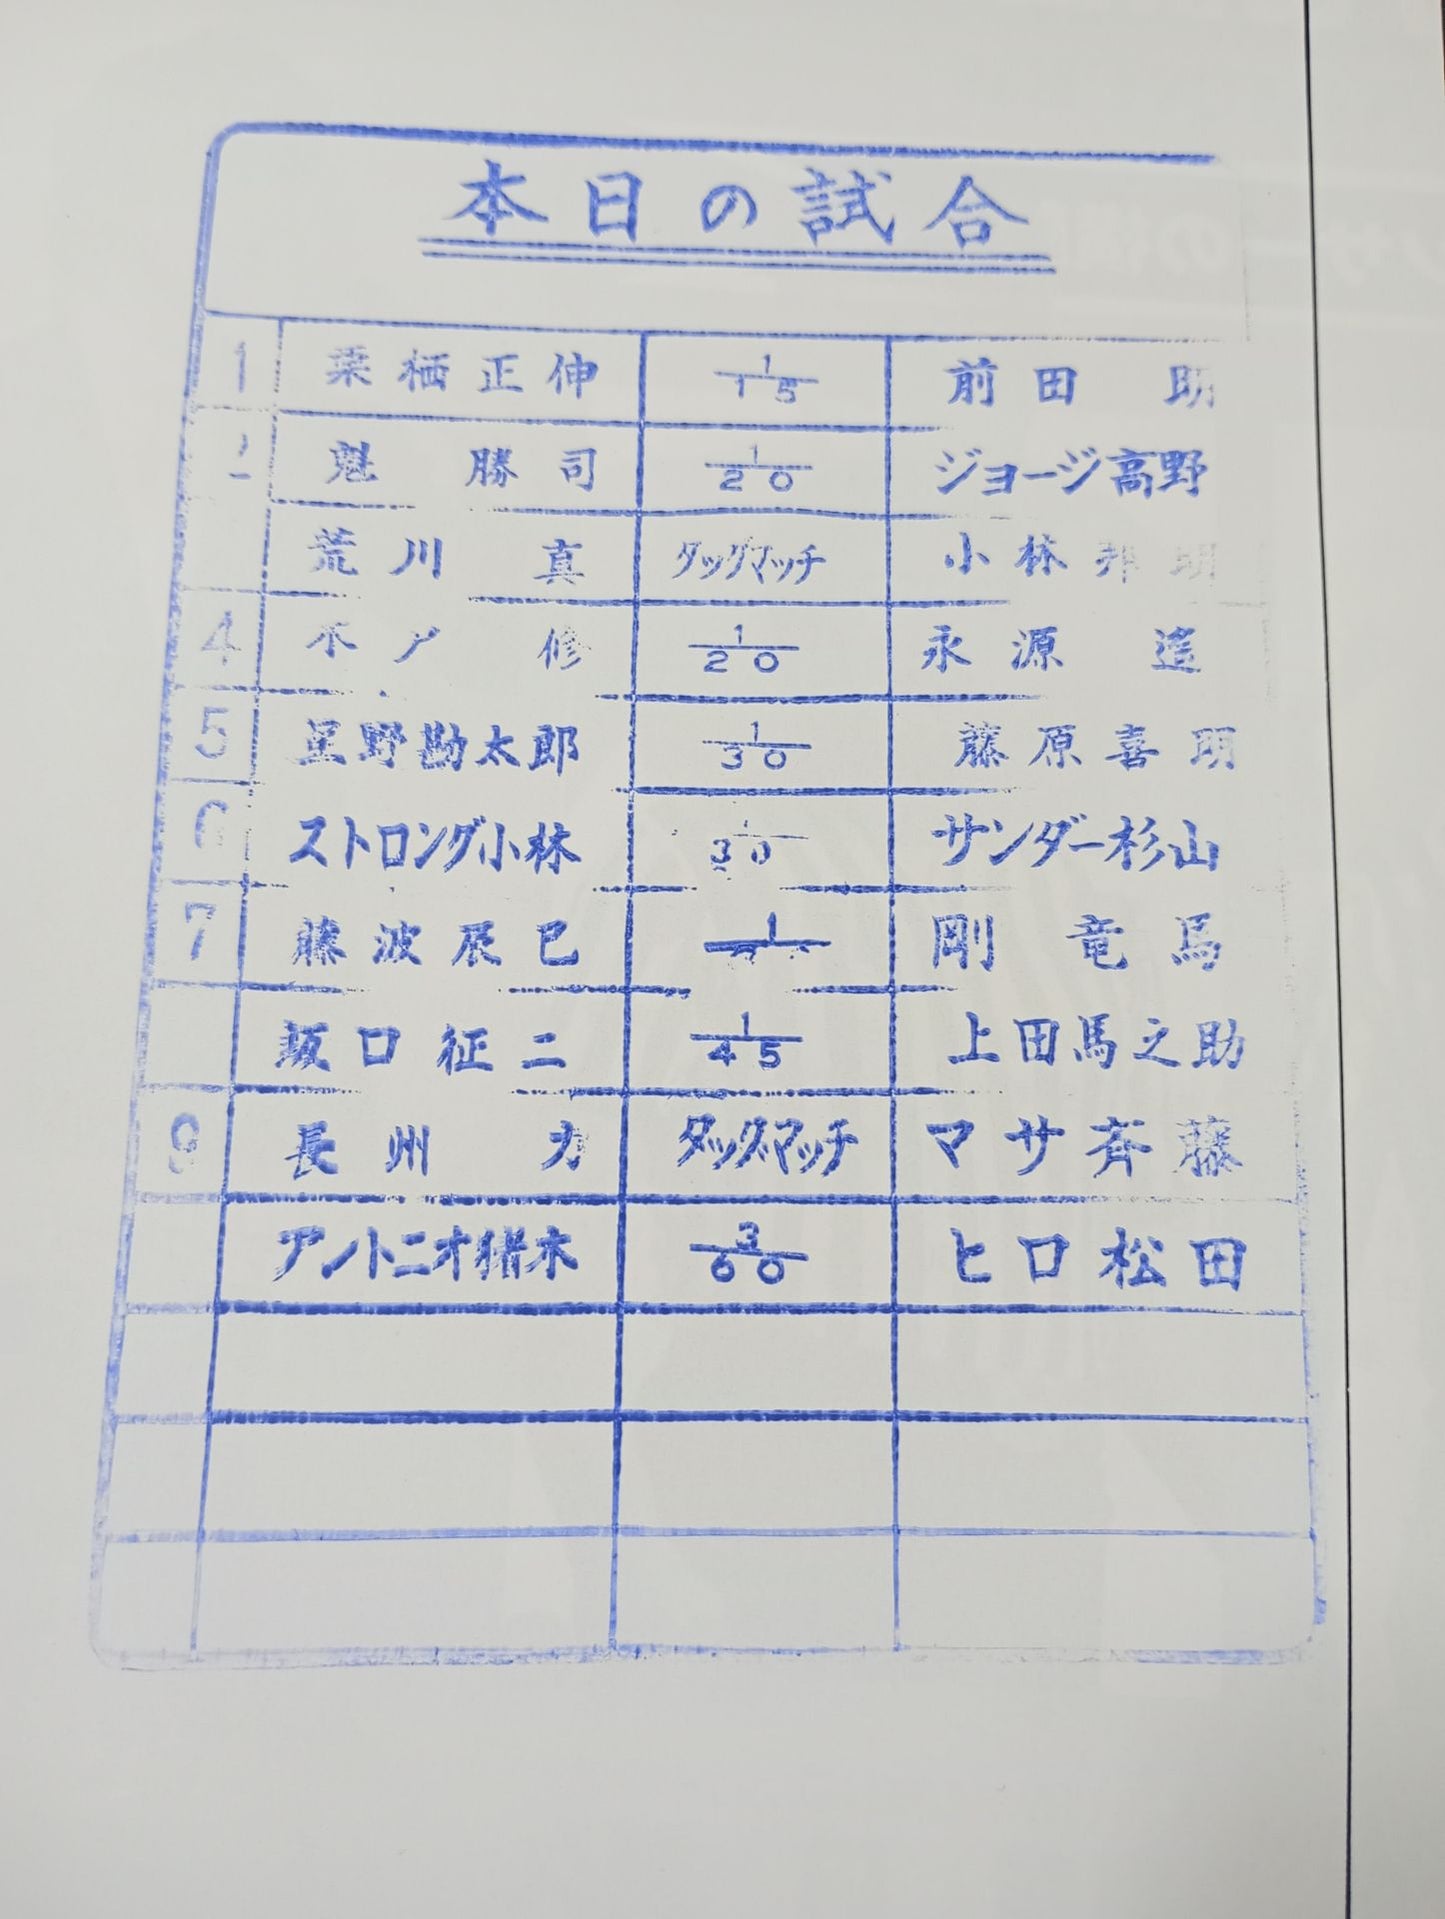 本日の試合
1 栗栖正伸 1/15 前田 明
2 魁 勝司 1/20 ジョージ高野
荒川 真 タッグマッチ 小林邦明
4 木戸 修 1/20 永源 遙
5 星野勘太郎 1/30 藤原喜明
6 ストロング小林 1/30 サンダー杉山
7 藤波辰巳 1 剛 竜馬
坂口征二 1/45 上田馬之助
9 長州 力 タッグマッチ マサ斉藤
アントニオ猪木 3/60 ヒロ松田